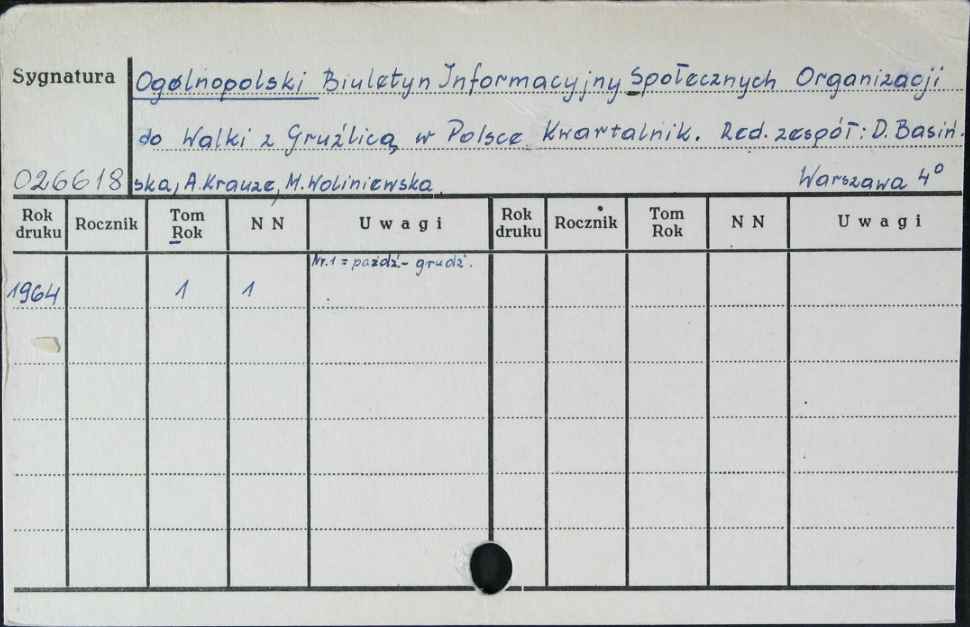 Sygnatura Ogólnopolski Biuletyn Informacyjny Społecznych Organizacji
do Walki z Gruźlicą w Polsce Kwartalnik. Red. zespół: D. Basiń-
026618 ska, A. Krauze, M. Woliniewska. Warszawa 4°
Rok druku Rocznik Tom Rok N N Uwagi Rok druku Rocznik Tom Rok N N Uwagi
Nr. 1 = paźdź - grudź.
1964 1 1